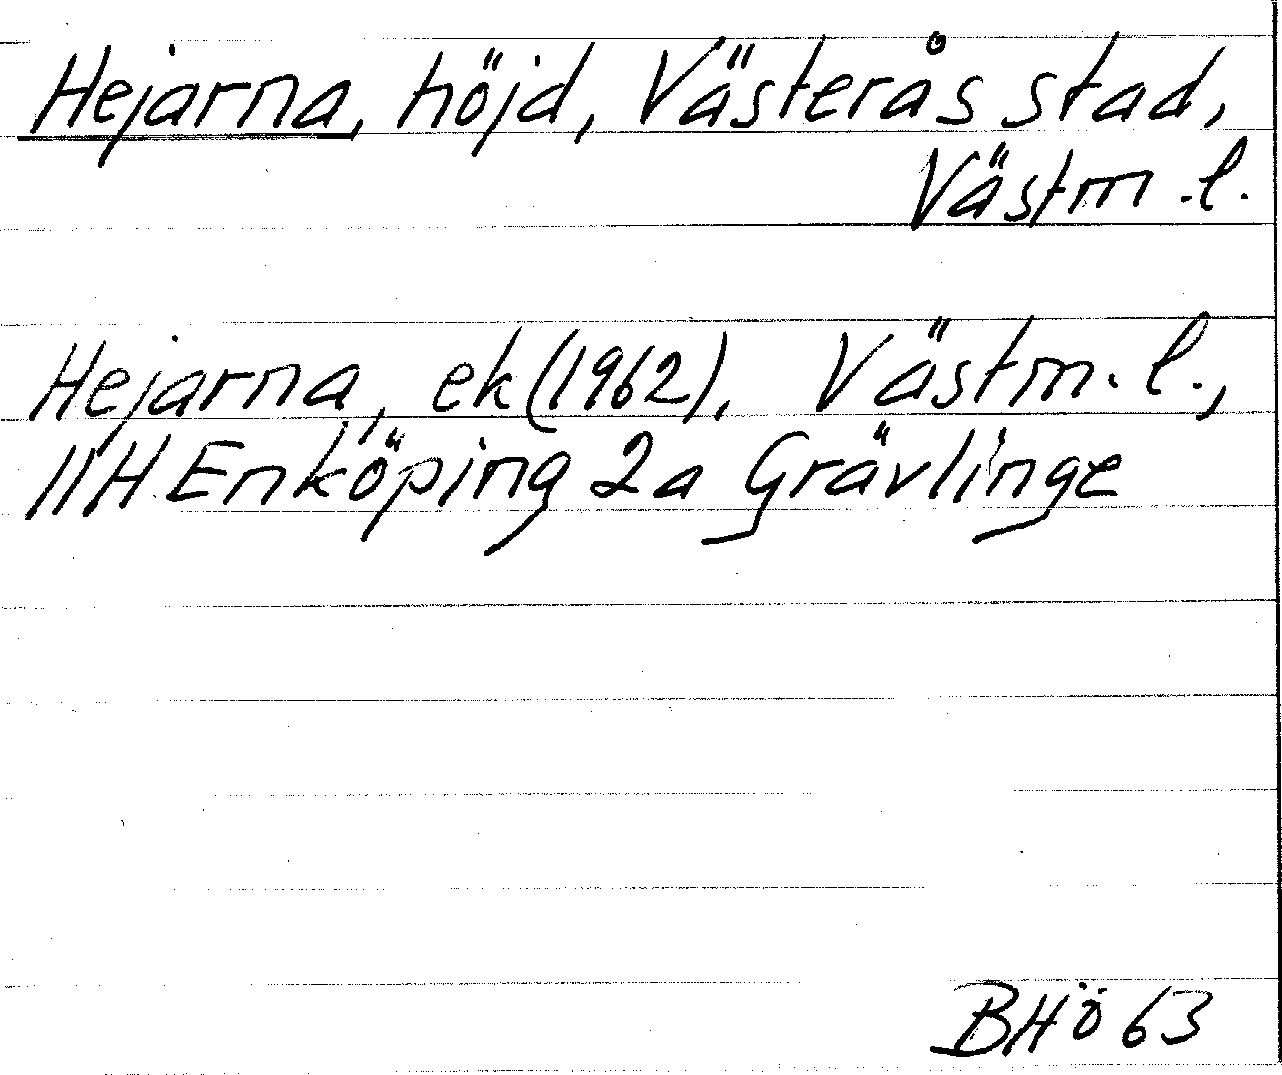 Hejarna, höjd, Västerås stad,
Västm.l.
Hejarna, ek (1962), Västm.l.,
11H Enköping 2a Grävlinge
BHö 63